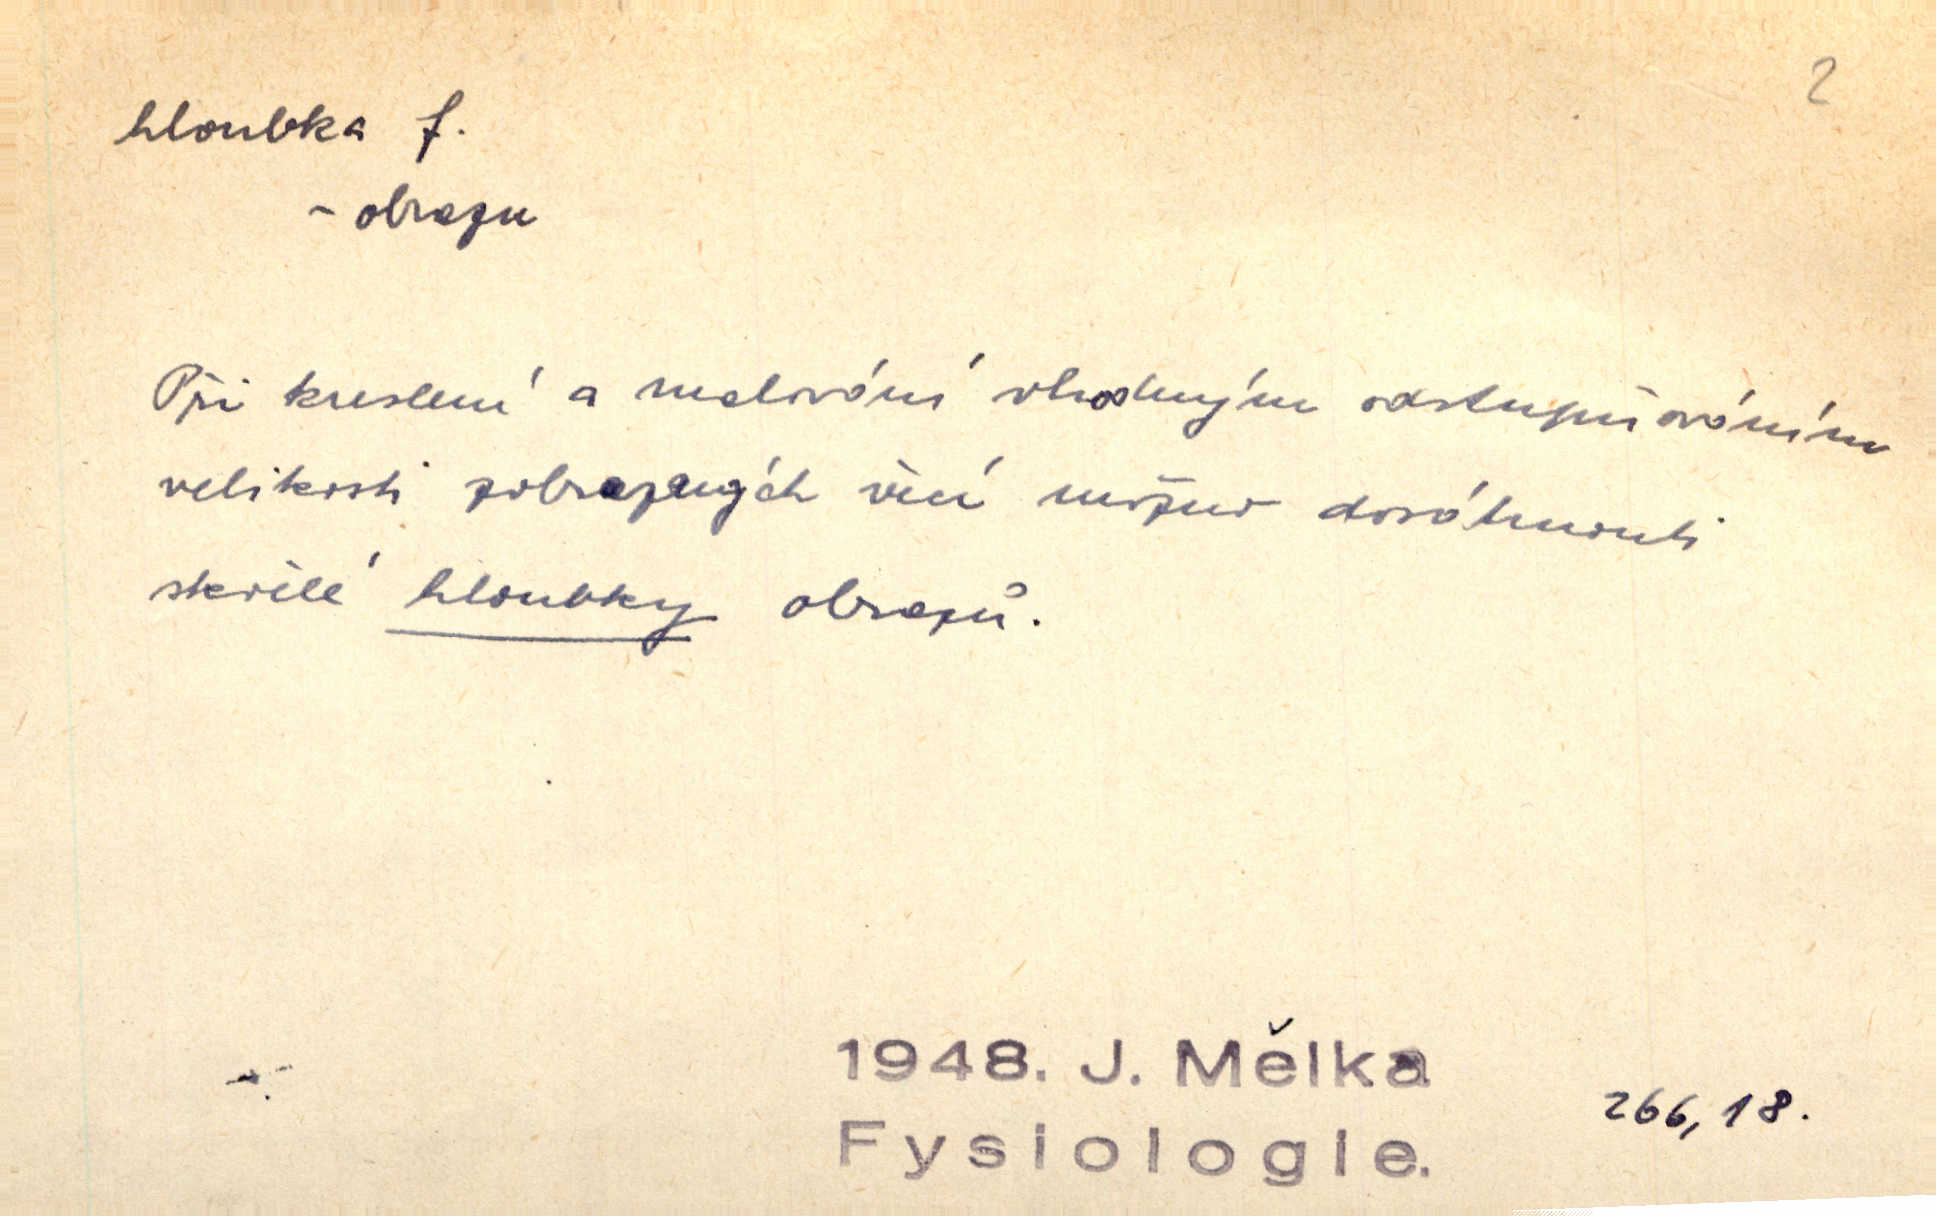 2
hloubka f.
- obrazu
Při kreslení a malování vhodným odstupňováním
velikosti zobrazených věcí možno dosáhnouti
skvělé hloubky obrazů.
1948. J. Mělka
Fysiologie.
266, 18.